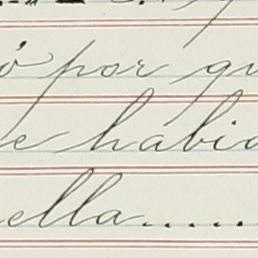 ó por qu
e habia
ella.....